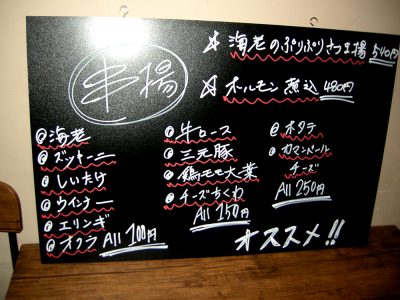 串揚
☆ 海老のぷりぷりさつま揚 540円
☆ ホルモン煮込 480円
◎海老
◎ズッキーニ
◎しいたけ
◎ウインナー
◎エリンギ
◎オクラ All 100円
◎牛ロース
◎三元豚
◎鶏モモ大葉
◎チーズちくわ
All 150円
◎ホタテ
◎カマンベール
チーズ
All 250円
オススメ!!